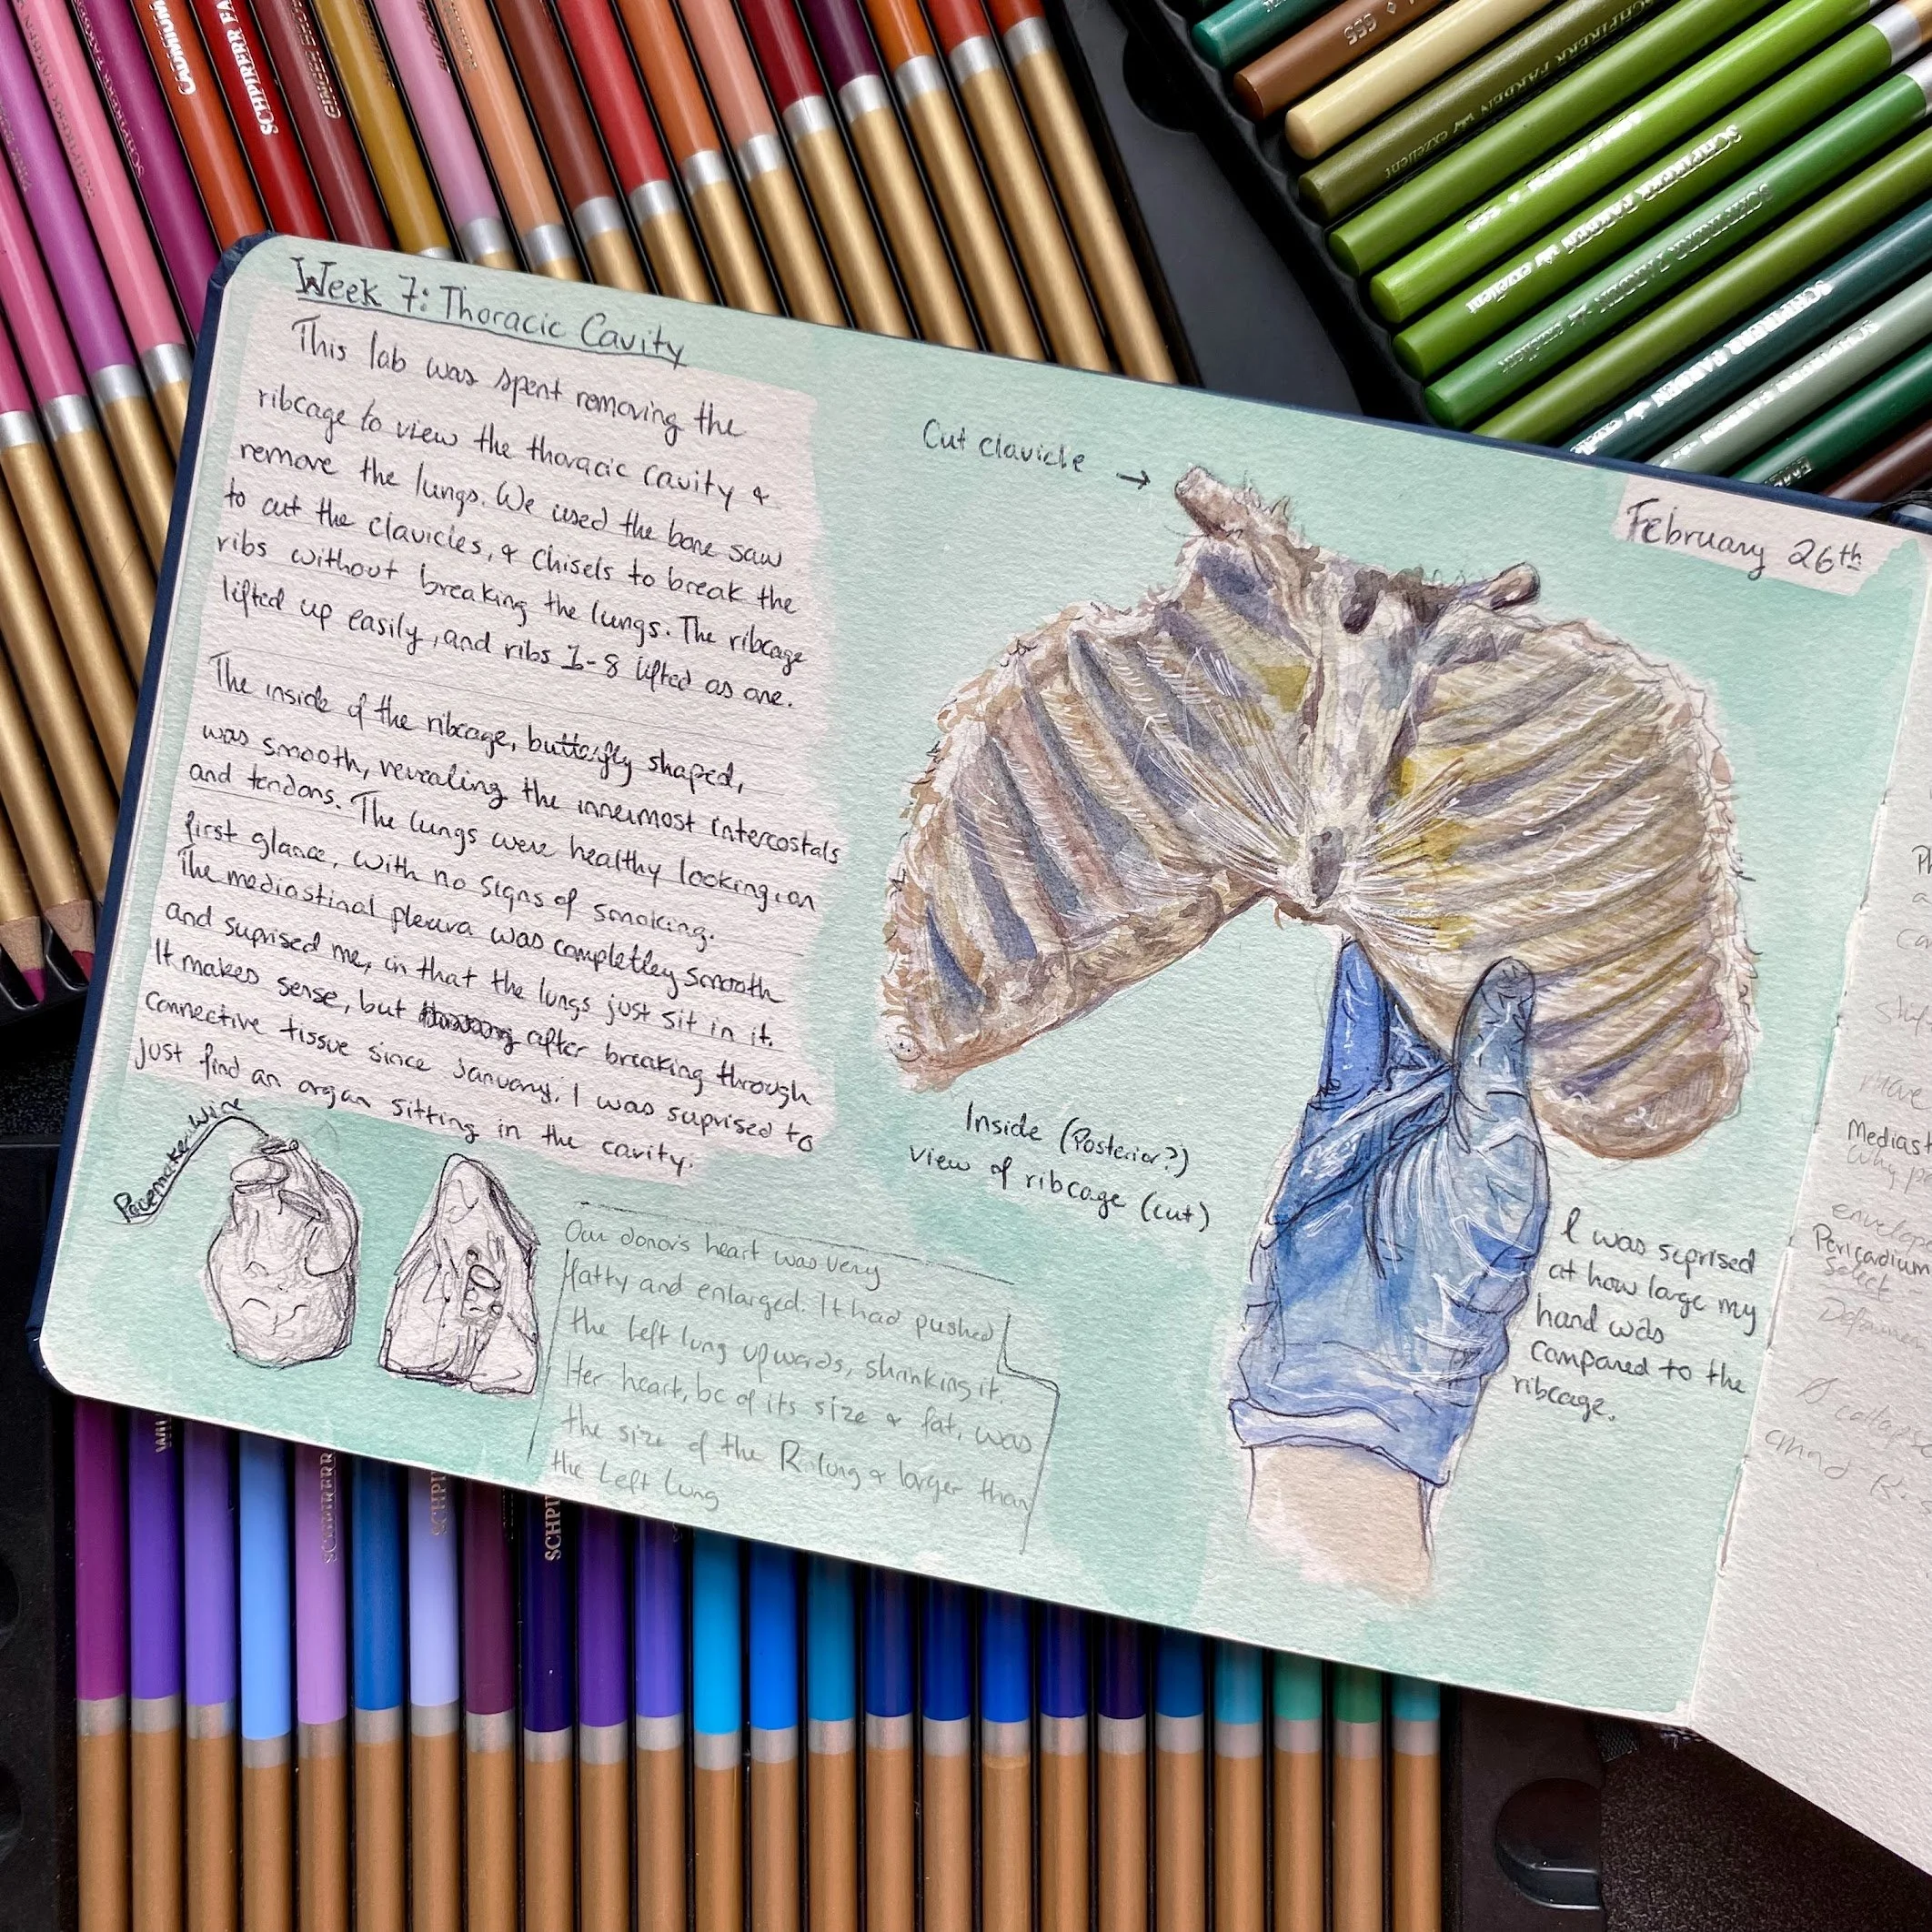 Week 7: Thoracic Cavity
This lab was spent removing the
ribcage to view the thoracic cavity &
remove the lungs. We used the bone saw
to cut the clavicles, & chisels to break the
ribs without breaking the lungs. The ribcage
lifted up easily, and ribs 1-8 lifted as one.
The inside of the ribcage, butterfly shaped,
was smooth, revealing the innermost intercostals
and tendons. The lungs were healthy looking, on
first glance, with no signs of smoking.
The mediastinal pleura was completley smooth
and suprised me, in that the lungs just sit in it.
It makes sense, but after breaking through
connective tissue since January, I was suprised to
just find an organ sitting in the cavity.
Pacemaker Wire
Our donor's heart was very
fatty and enlarged. It had pushed
the left lung upwards, shrinking it.
Her heart, bc of its size & fat, was
the size of the R lung & larger than
the Left Lung
Cut clavicle →
February 26th
Inside (Posterior?)
view of ribcage (cut)
I was suprised
at how large my
hand was
compared to the
ribcage.
Mediast
envelope
Pericardium
CADMIUM
SCHPIRERR FA
SCHPIRERR FARBEN
555
SCHPIRERR FARBEN exzellent
SCHPIRERR FARBEN exzellent
SCHPIRERR FARBEN
SCHPIRERR
SCHPI
SCHPI